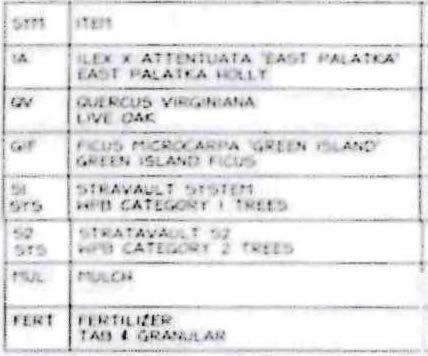 SYM ITEM
IA ILEX X ATTENTUATA 'EAST PALATKA'
EAST PALATKA HOLLY
QV QUERCUS VIRGINIANA
LIVE OAK
GIF FICUS MICROCARPA 'GREEN ISLAND'
GREEN ISLAND FICUS
S1 STRAVAULT SYSTEM
SYS WPB CATEGORY 1 TREES
S2 STRATAVAULT S2
SYS WPB CATEGORY 2 TREES
MUL MULCH
FERT FERTILIZER
TAB & GRANULAR